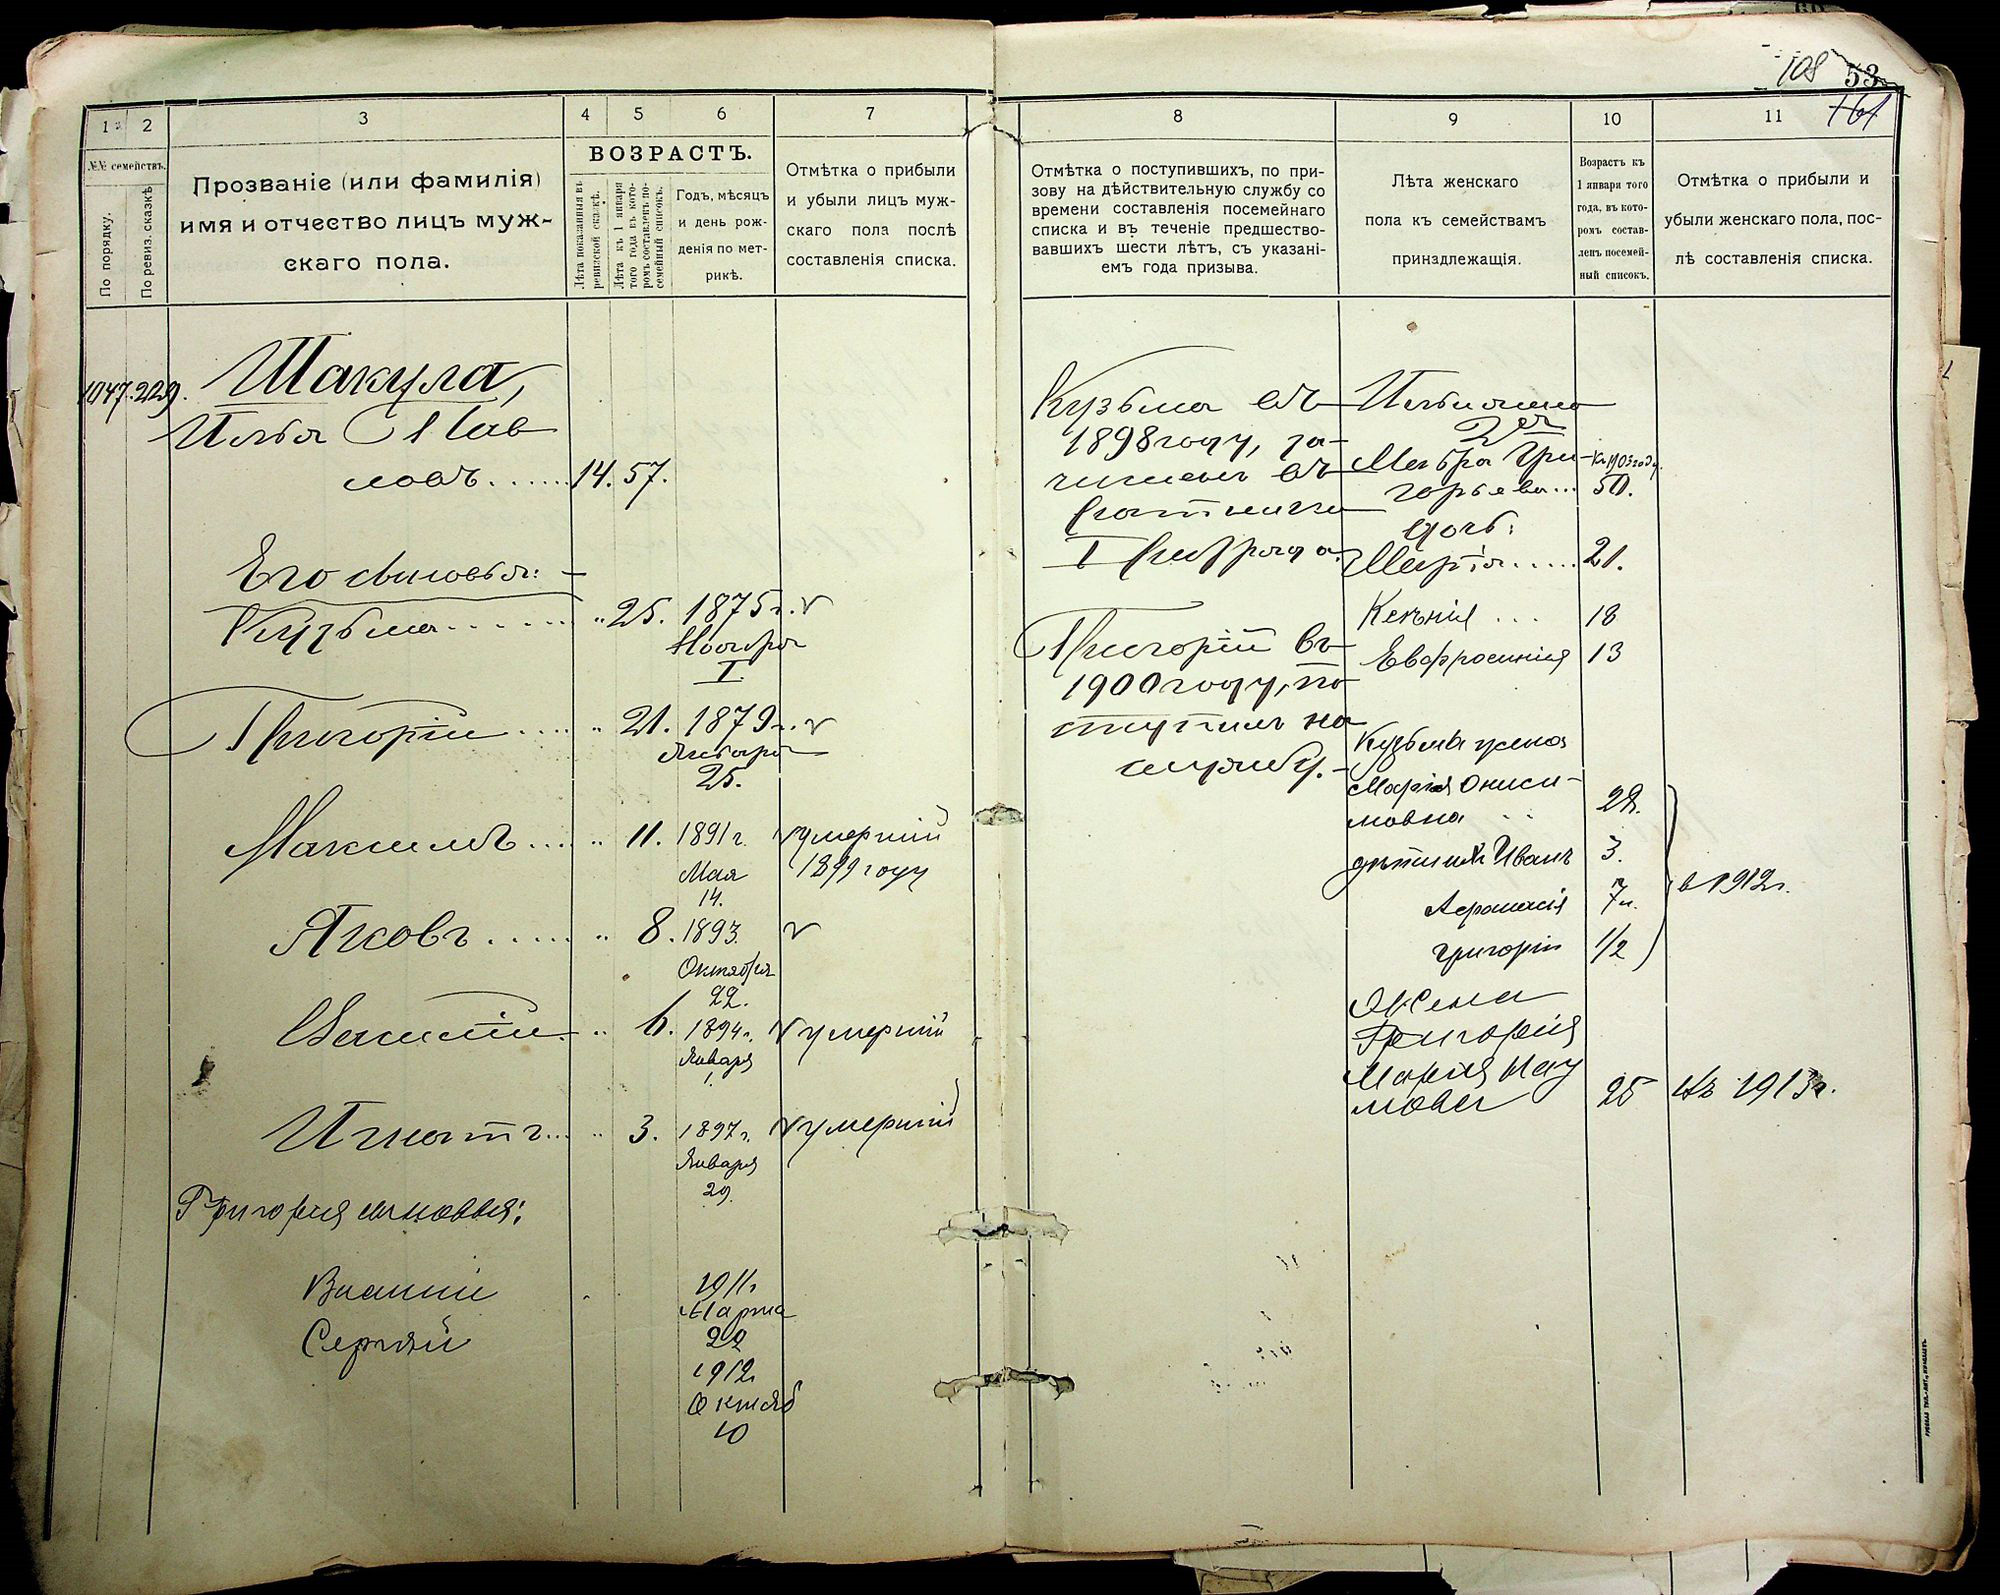 108 53
161
1 2 3 4 5 6 7
№№ семействъ.
По порядку.
По ревиз. сказкѣ
Прозваніе (или фамилія)
имя и отчество лицъ муж-
скаго пола.
ВОЗРАСТЪ.
Лѣта показанныя въ
ревизской сказкѣ.
Лѣта къ 1 января
того года въ кото-
ромъ составленъ по-
семейный списокъ.
Годъ, мѣсяцъ
и день рож-
денія по мет-
рикѣ.
Отмѣтка о прибыли
и убыли лицъ муж-
скаго пола послѣ
составленія списка.
1047. 229. Шакула,
Илья Пав
ловъ...... 14. 57.
Его сыновья: -
Кузьма....... " 25. 1875 г.
Ноября
1.
Григорій..... " 21. 1879 г.
Января
25.
Максимъ.... " 11. 1891 г. умершій
1899 году
Мая
14.
Яковъ..... " 8. 1893.
Октября
22.
Василій. " 6. 1894 г. умершій
Января
1.
Игнатъ... " 3. 1897 г. умершій
Января
29.
Григорія сыновья:
Василій 1911 г
Марта
22
Сергѣй
1912
Октяб
10
8 9 10 11
Отмѣтка о поступившихъ, по при-
зову на дѣйствительную службу со
времени составленія посемейнаго
списка и въ теченіе предшество-
вавшихъ шести лѣтъ, съ указані-
емъ года призыва.
Лѣта женскаго
пола къ семействамъ
принадлежащія.
Возрастъ къ
1 января того
года, въ кото-
ромъ состав-
ленъ посемей-
ный списокъ.
Отмѣтка о прибыли и
убыли женскаго пола, пос-
лѣ составленія списка.
Кузьма въ
1898 году, за-
численъ въ
ратники
I разряда.
Григорій въ
1900 году, по
ступилъ на
службу. -
Ильи жена
2я
Мавра Гри-
горьева... 50.
къ 1903 году.
дочь:
Марія..... 21.
Ксенія ... 18
Евфросинія 13
Кузьмы жена
МаріяОниси-
мовна .. 28.
дѣти ихъ Иванъ 3.
Афанасія 7 м.
Григорій 1/2
в 1912 г.
Жена
Григорія
Марія Нау
мова 25 Къ 1913 г.